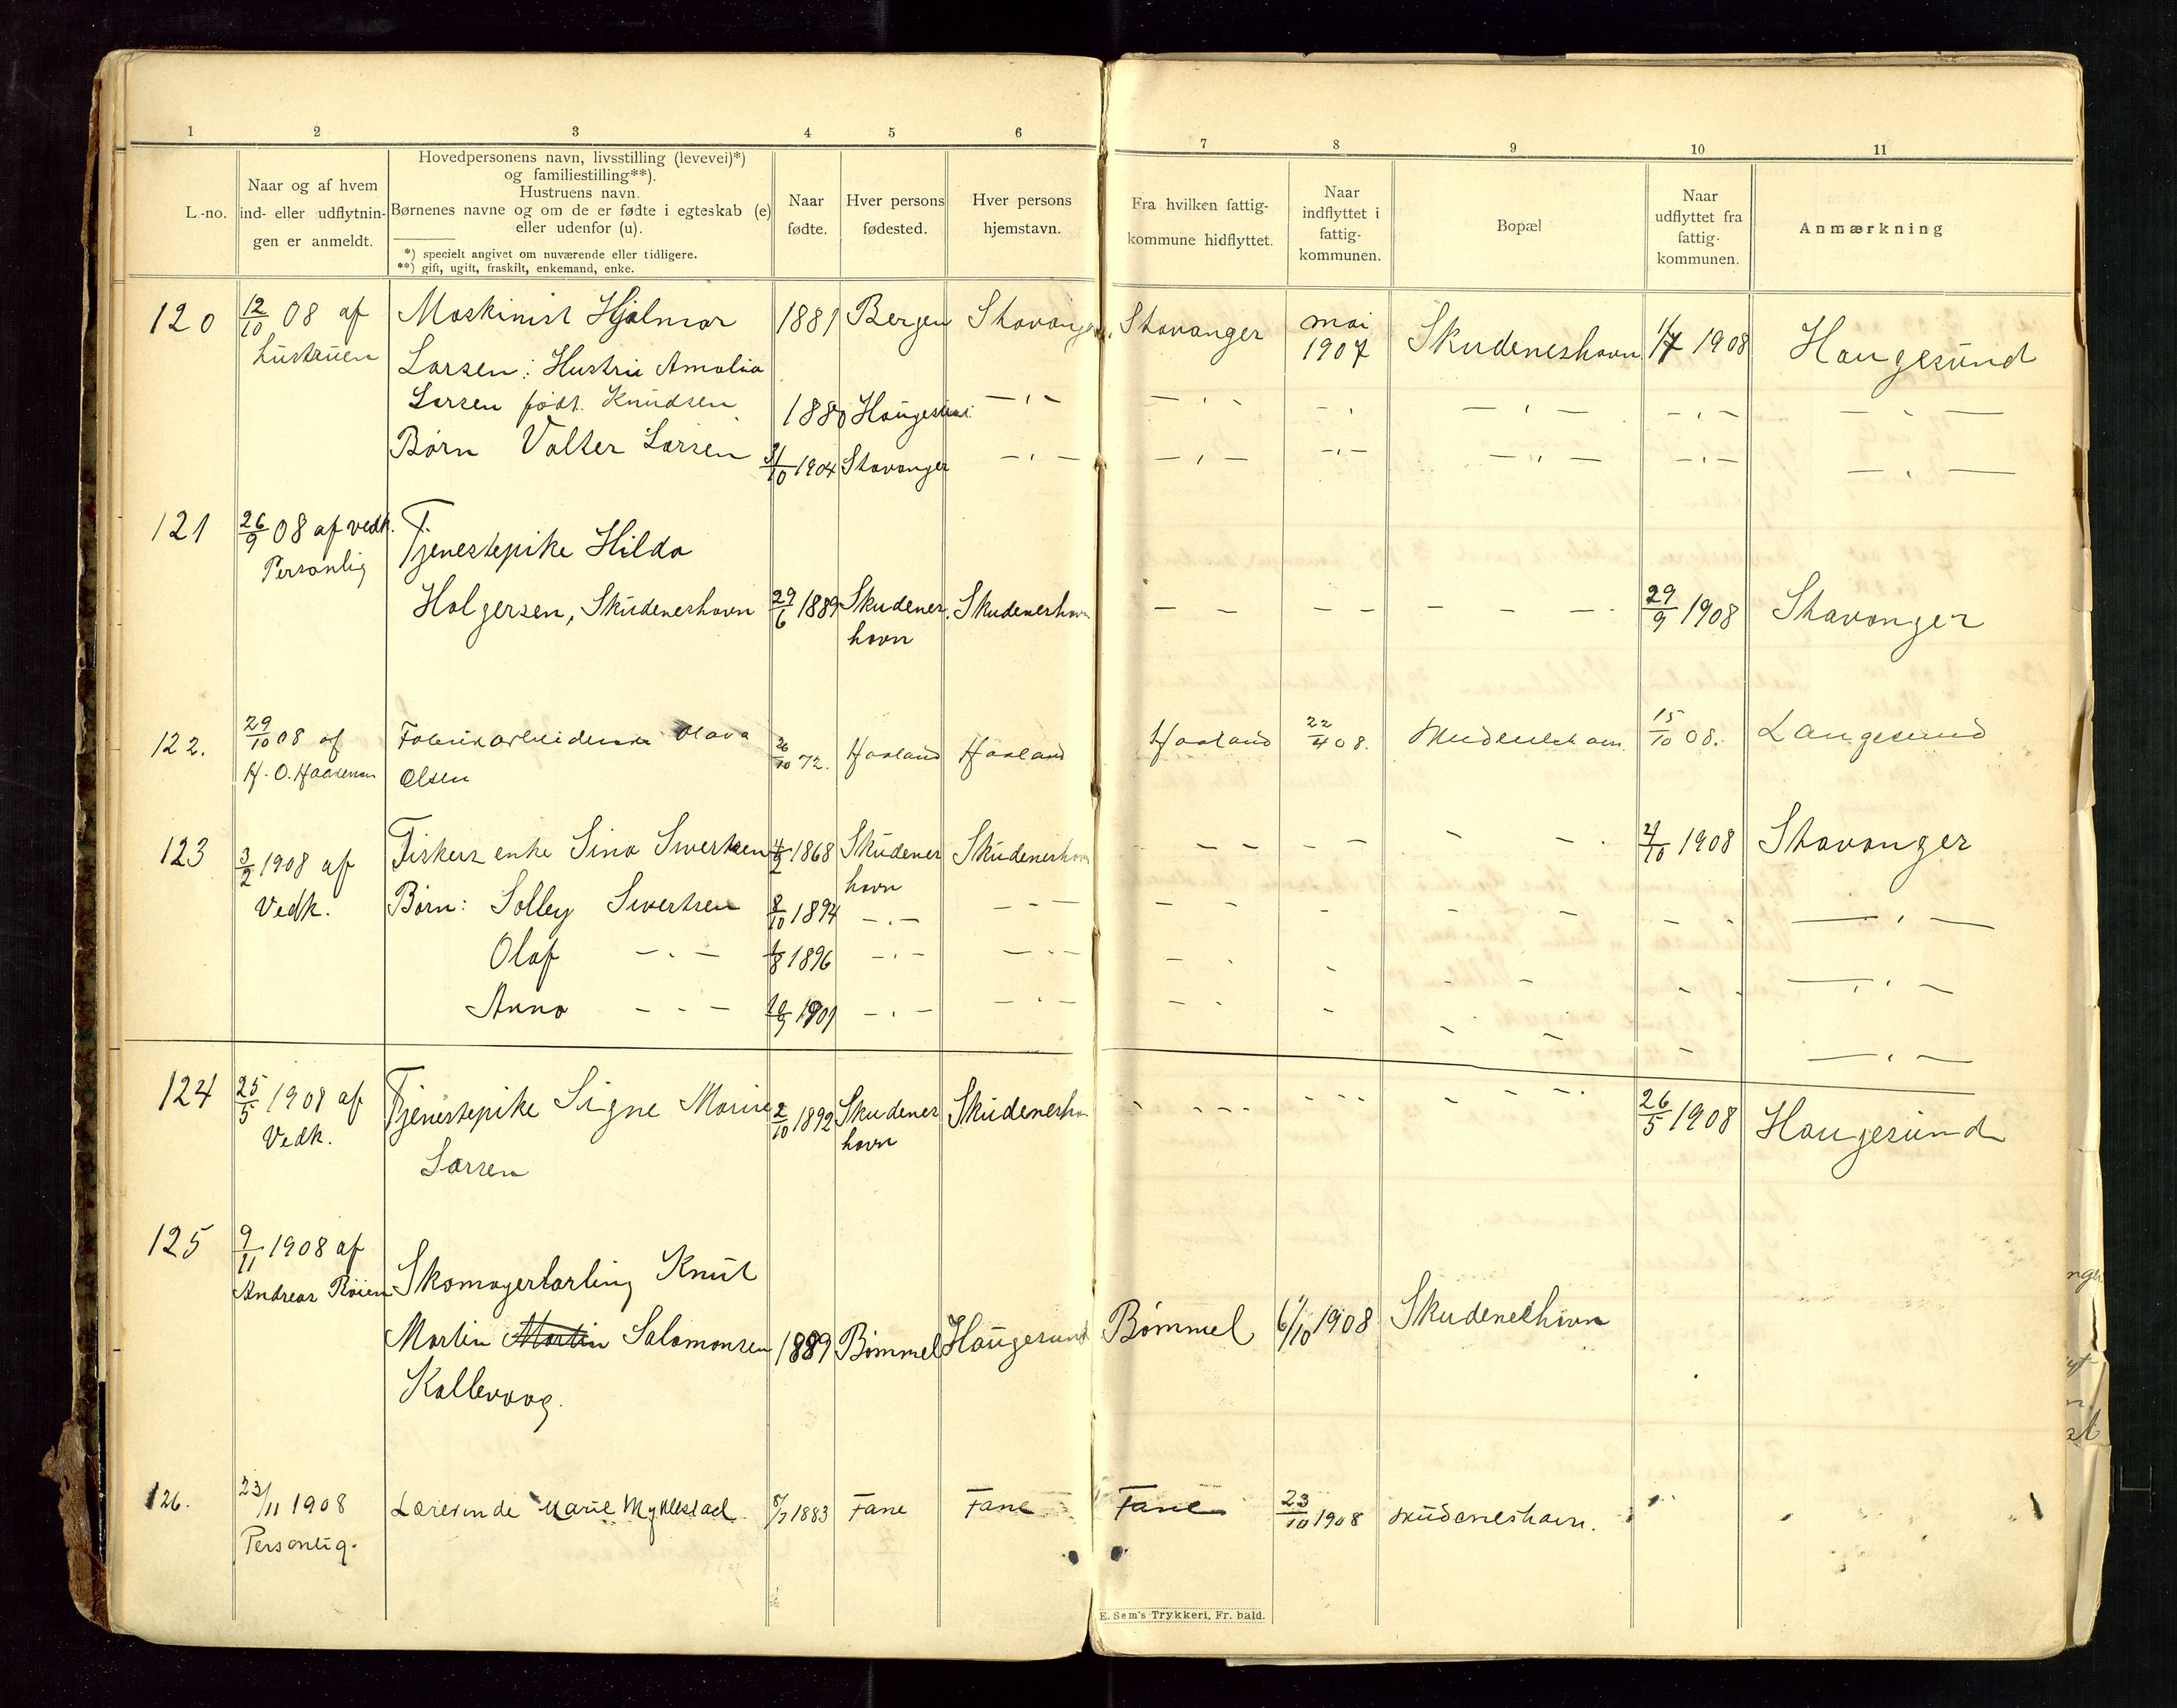 1 2 3 4 5 6 7 8 9 10 11
L.-no.
Naar og af hvem
ind- eller udflytnin-
gen er anmeldt.
Hovedpersonens navn, livsstilling (levevei)*)
og familiestilling**).
Hustruens navn.
Børnenes navne og om de er fødte i egteskab (e)
eller udenfor (u).
*) specielt angivet om nuværende eller tidligere.
**) gift, ugift, fraskilt, enkemand, enke.
Naar
fødte.
Hver persons
fødested.
Hver persons
hjemstavn.
Fra hvilken fattig-
kommune hidflyttet.
Naar
indflyttet i
fattig-
kommunen.
Bopæl
Naar
udflyttet fra
fattig-
kommunen.
Anmærkning
120 12/10 08 af Maskinist Hjalmar 1881 Bergen Stavanger Stavanger mai 1907 Skudeneshavn 1/7 1908 Haugesund
hustruen Larsen: Hustru Amalia
Larsen født. Knudsen 1880 Haugesund - " - - " - - " - - " - - " - - " -
Børn Valter Larsen /10 1904 Stavanger - " - - " - - " - - " - - " - - " -
121 26/9 08 af vedk. Tjenestepike Hilda
Personlig
Holgersen, Skudeneshavn 29/6 1889 Skudenes Skudeneshavn - - - - - - - - 29/9 1908 Stavanger
havn
122. 29/10 08 af Fabrikarbeiderske Olava 26/10 72. Haaland Haaland Haaland 22/4 08. Skudeneshavn. 15/10 08. Langesund
H. O. Olsen
123 3/2 1908 af Fiskers enke Sina Sivertsen 4/2 1868 Skudenes Skudeneshavn - - - - - - - /10 1908 Stavanger
havn
Vedk. Børn: Solley Sivertsen 8/10 1894 - " - - " - - - - - - - - - - " -
Olaf - " - /8 1896 - " - - " - - - - - - - - - " -
Anna - " - /9 1901 - " - - " - - - - - - - " -
124 25/5 1908 af Tjenestepike Signe Marie 2/10 1892 Skudenes Skudeneshavn - - - - - - - - - - - 26/5 1908 Haugesund
Vedk. Larsen havn
125 9/11 1908 af Skomagerlærling Knut
Andreas
Martin Martin Salomonsen 1889 Bømmel Haugesund Bømmel 6/10 1908 Skudeneshavn
Kallevaag.
126. 23/11 1908 Lærerinde Marie Myklestad 8/7 1883 Fane Fane Fane 23/10 1908 Skudeneshavn.
Personlig.
E. Sem's Trykkeri, Fr. hald.